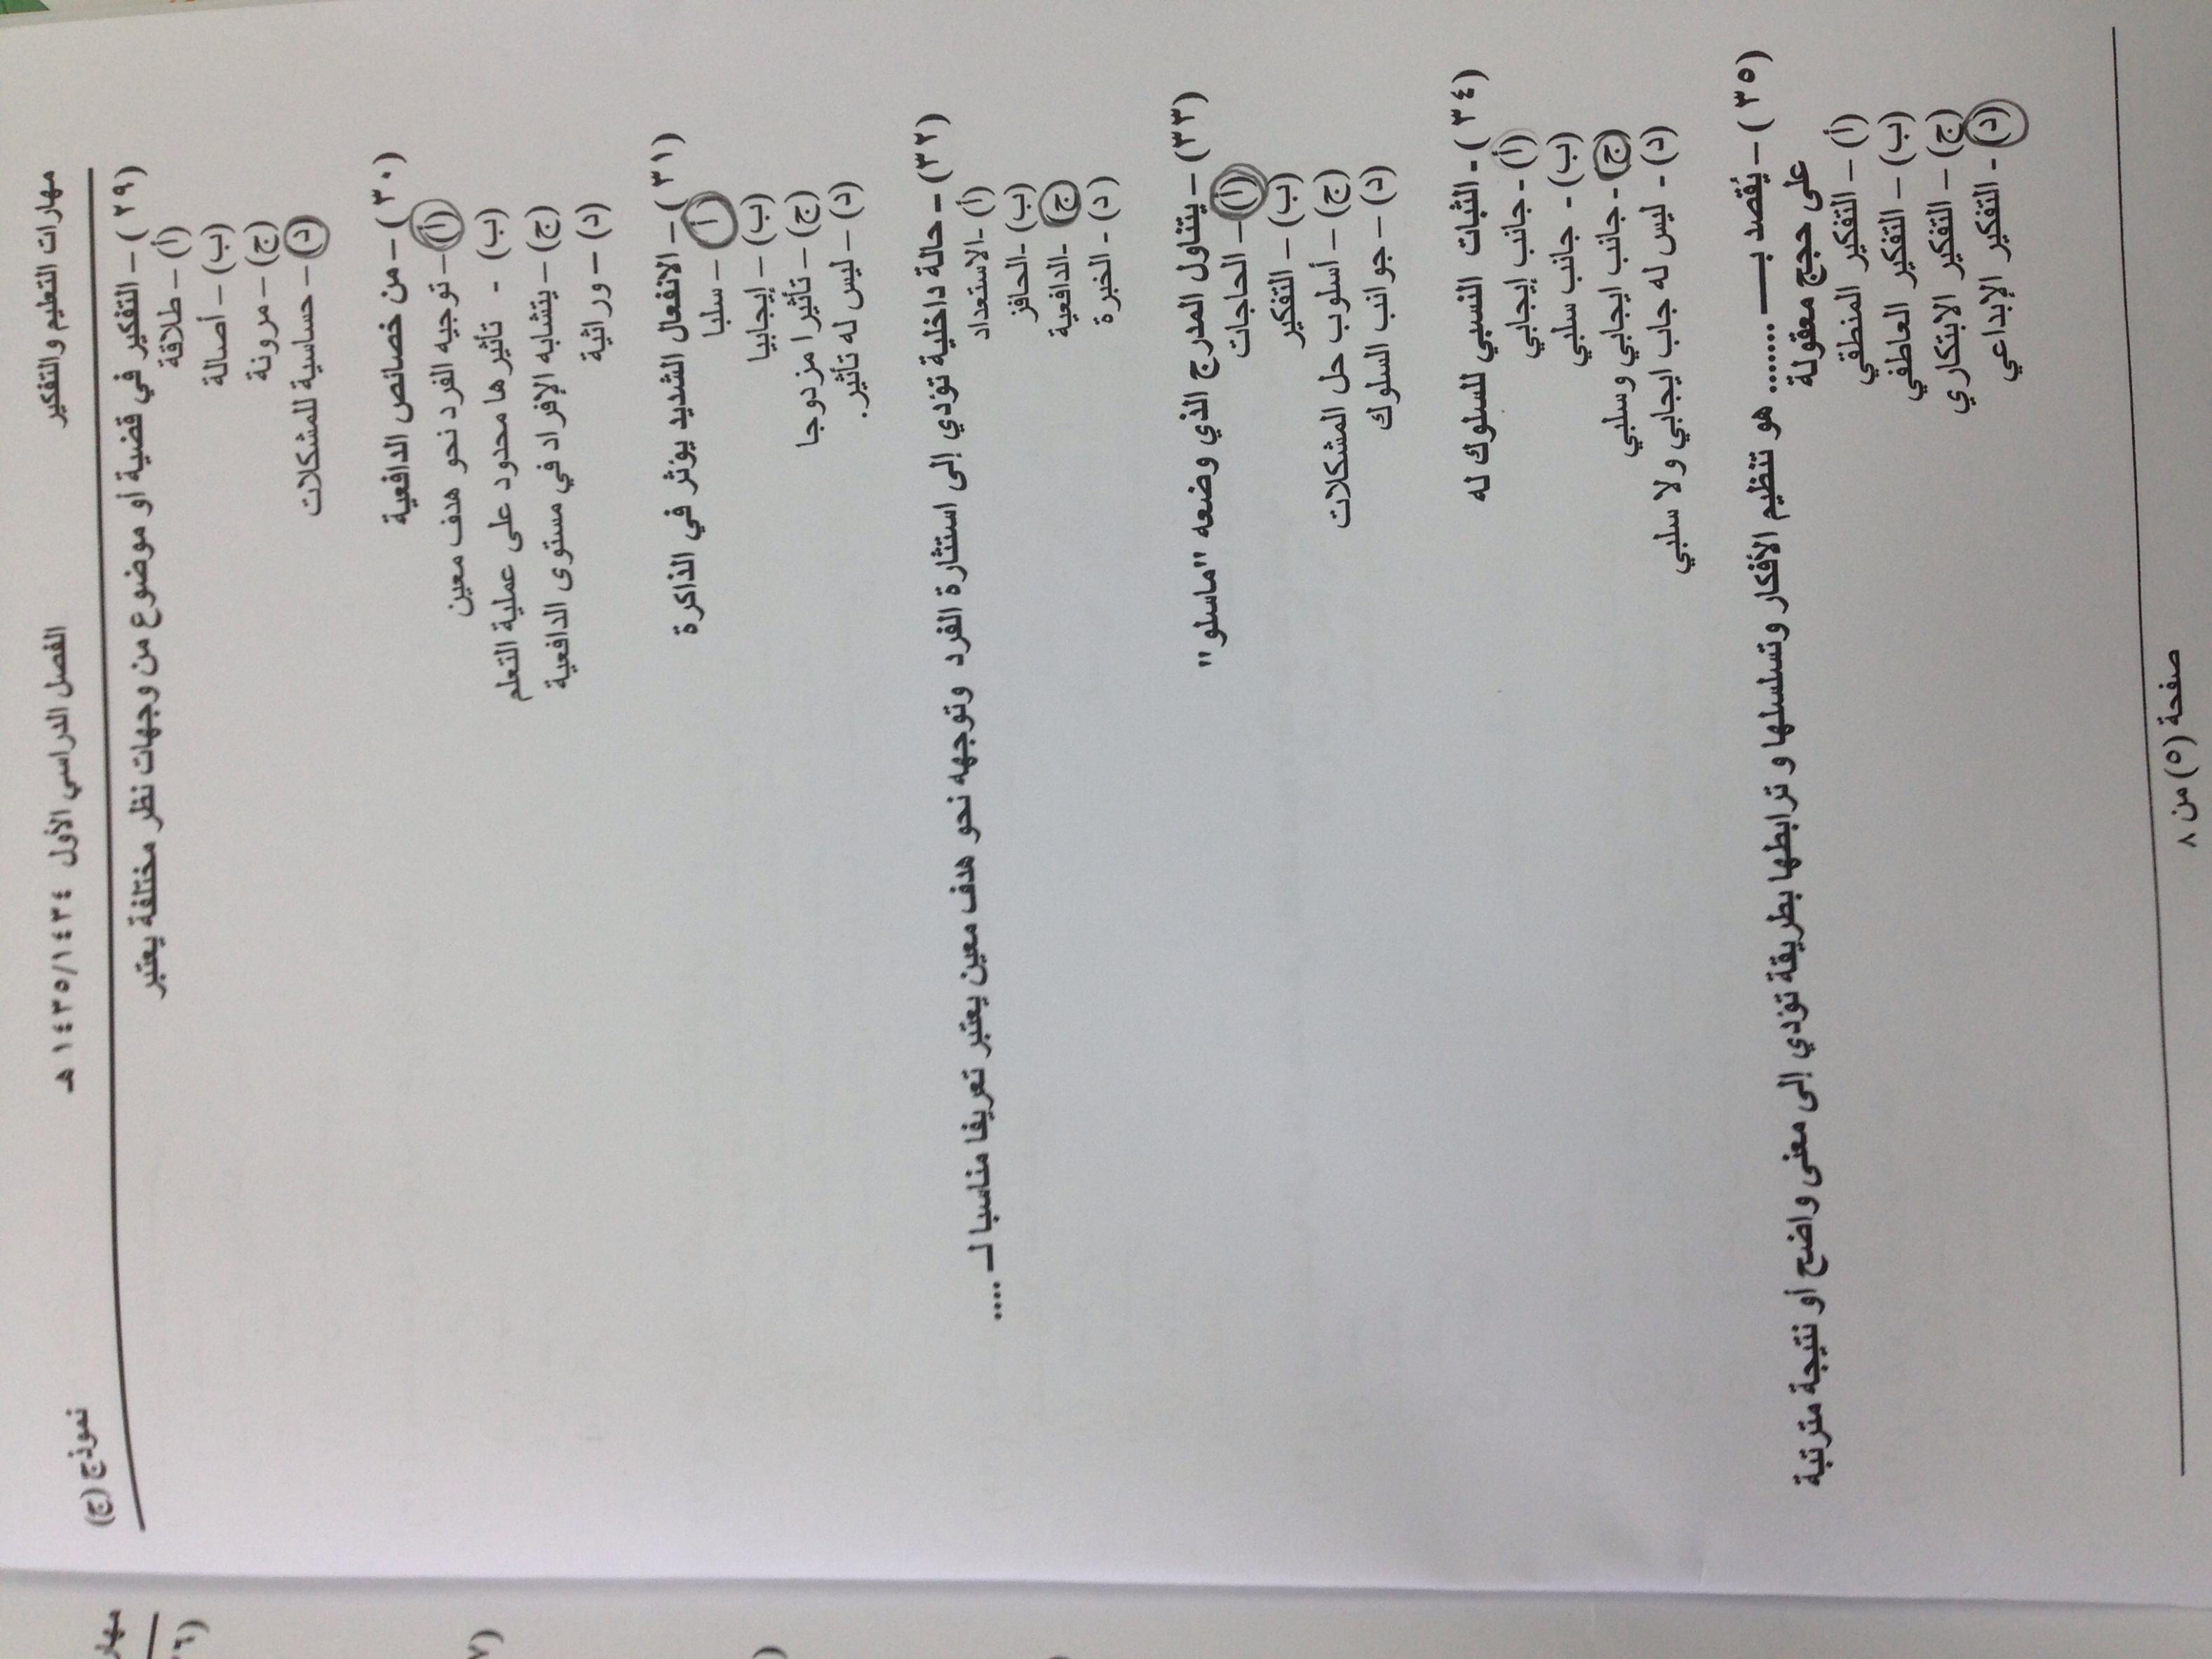 مهارات التعليم والتفكير الفصل الدراسي الأول ١٤٣٥/١٤٣٤ هـ نموذج (ج)
(٢٩) – التفكير في قضية أو موضوع من وجهات نظر مختلفة يعتبر
(أ) – طلاقة
(ب) – أصالة
(ج) – مرونة
(د) – حساسية للمشكلات
(٣٠) – من خصائص الدافعية
(أ) – توجيه الفرد نحو هدف معين
(ب) - تأثيرها محدود على عملية التعلم
(ج) – يتشابه الإفراد في مستوى الدافعية
(د) – وراثية
(٣١) – الانفعال الشديد يؤثر في الذاكرة
(أ) – سلبا
(ب) – إيجابيا
(ج) – تأثيرا مزدوجا
(د) – ليس له تأثير.
(٣٢) – حالة داخلية تؤدي إلى استثارة الفرد وتوجهه نحو هدف معين يعتبر تعريفا مناسبا لـ ....
(أ) -الاستعداد
(ب) -الحافز
(ج) -الدافعية
(د) - الخبرة
(٣٣) – يتناول المدرج الذي وضعه "ماسلو"
(أ) – الحاجات
(ب) – التفكير
(ج) – أسلوب حل المشكلات
(د) – جوانب السلوك
(٣٤) - الثبات النسبي للسلوك له
(أ) - جانب إيجابي
(ب) - جانب سلبي
(ج) - جانب ايجابي وسلبي
(د) - ليس له جاب ايجابي ولا سلبي
(٣٥) – يُقصد بـ ....... هو تنظيم الأفكار وتسلسلها و ترابطها بطريقة تؤدي إلى معنى واضح أو نتيجة مترتبة
على حجج معقولة
(أ) – التفكير المنطقي
(ب) – التفكير العاطفي
(ج) – التفكير الابتكاري
(د) - التفكير الإبداعي
صفحة (٥) من ٨